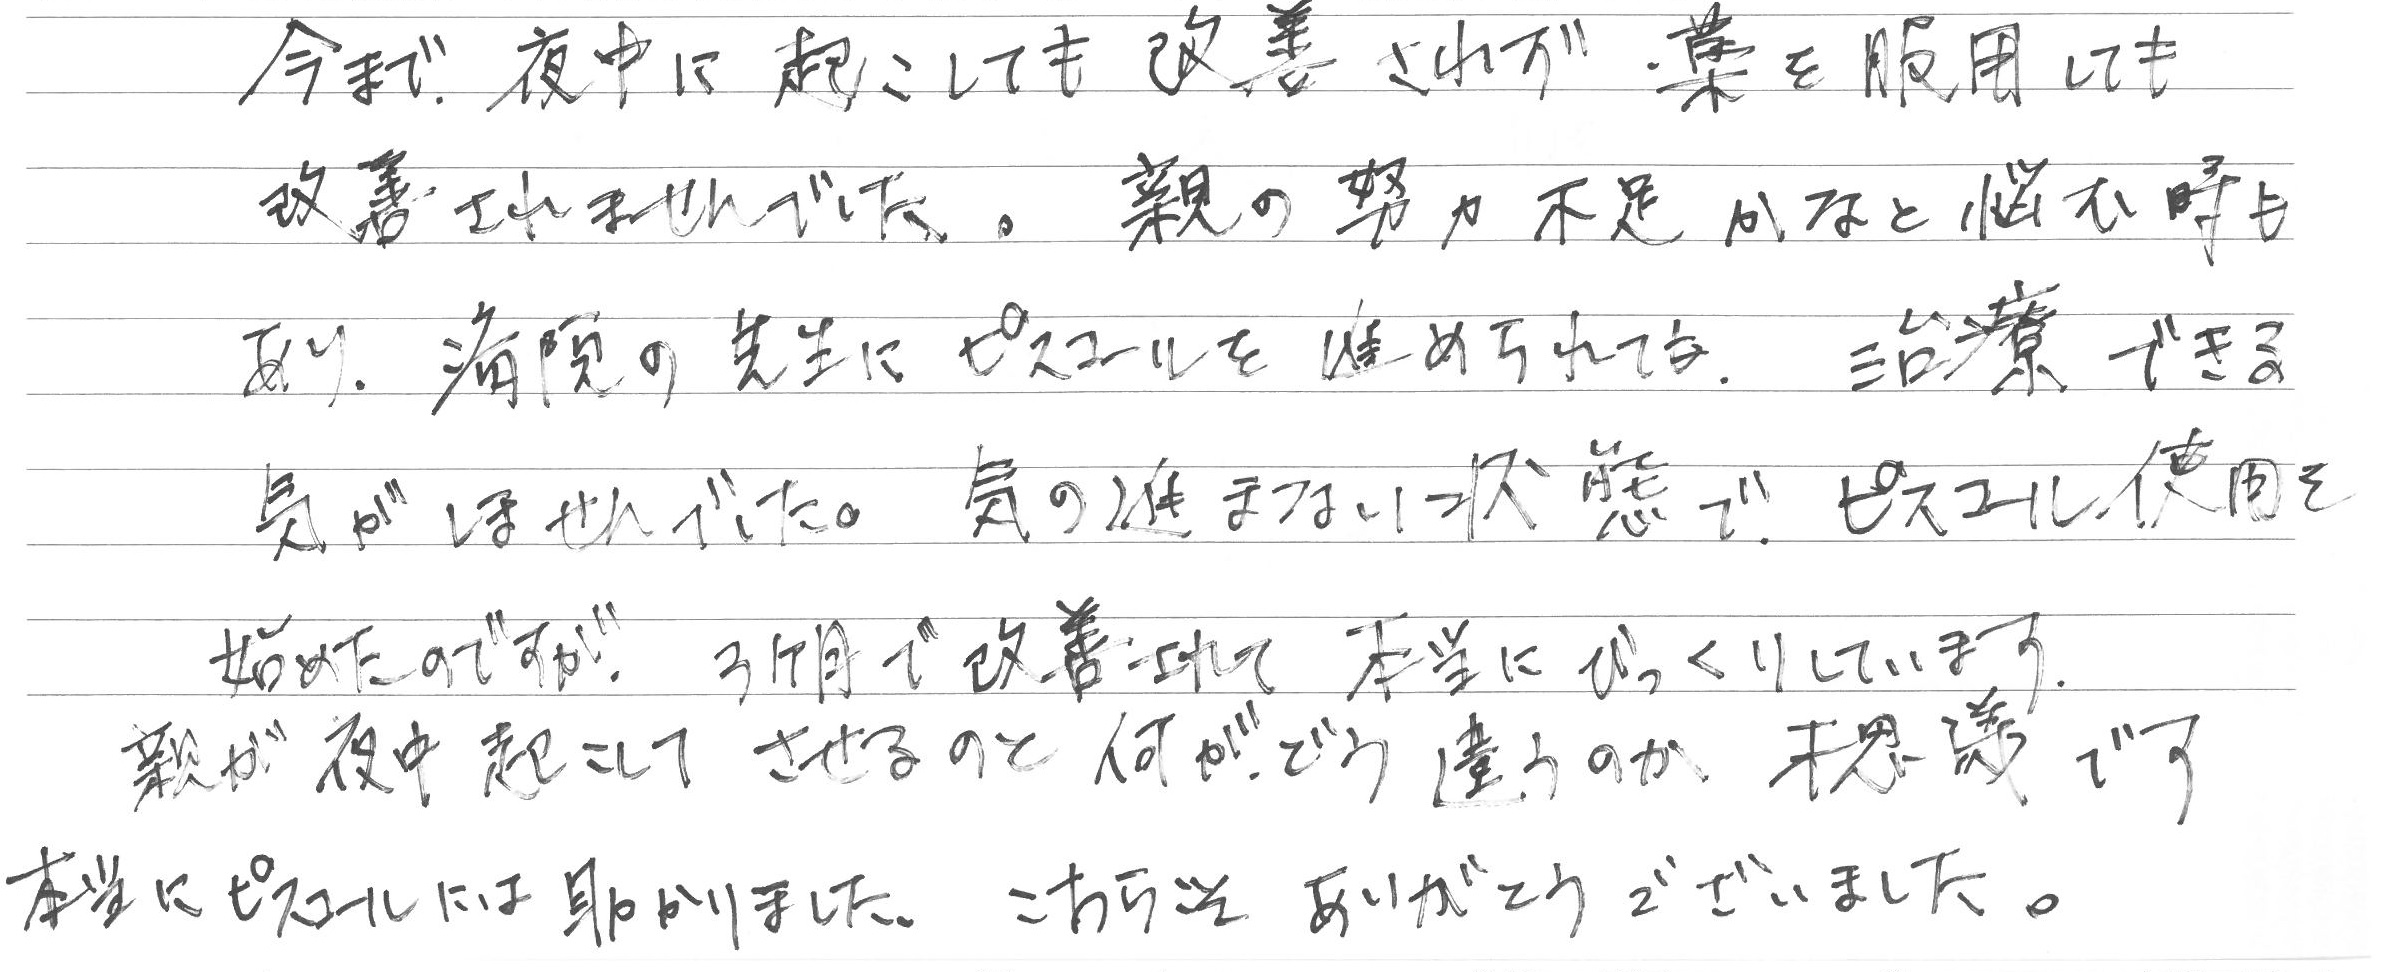 今まで、夜中に起こしても改善されず、薬を服用しても
改善されませんでした。親の努力不足かなと悩む時も
あり、病院の先生にピスコールを進められても、治療できる
気がしませんでした。気の進まない状態で、ピスコール使用を
始めたのですが、3ケ月で改善されて本当にびっくりしています。
親が夜中起こしてさせるのと何がどう違うのか不思議です
本当にピスコールには助かりました。こちらこそありがとうございました。